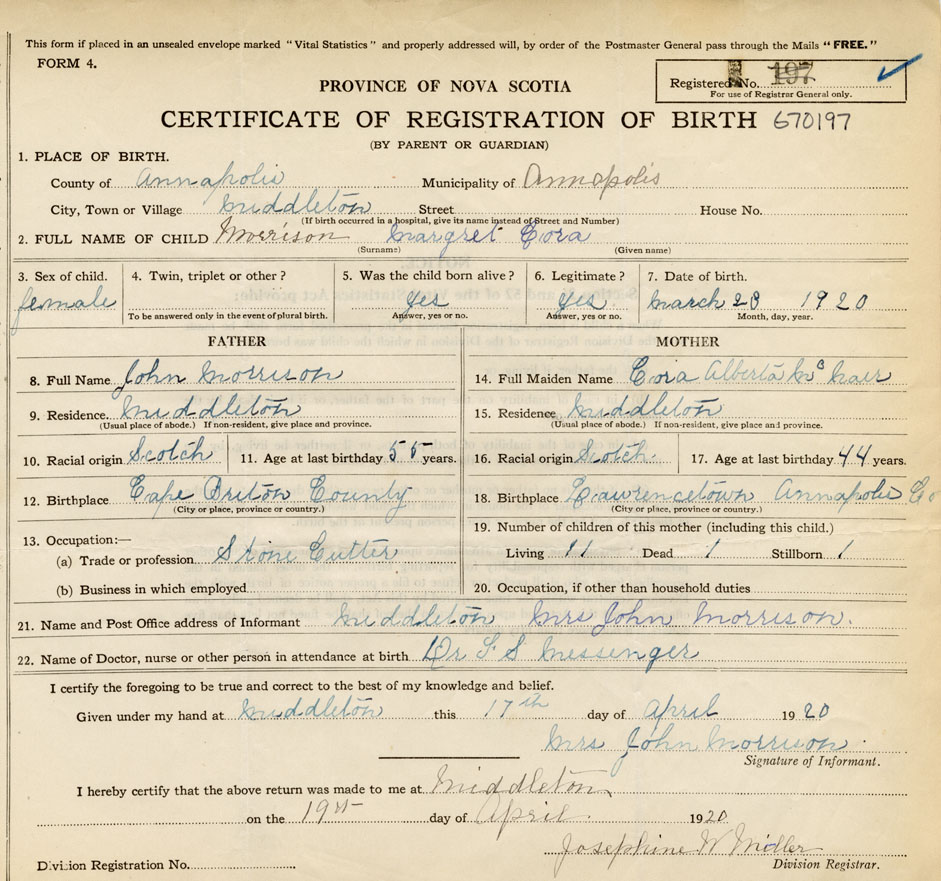 This form if placed in an unsealed envelope marked "Vital Statistics" and properly addressed will, by order of the Postmaster General pass through the Mails "FREE."
FORM 4.
Registered No. 197
For use of Registrar General only.
PROVINCE OF NOVA SCOTIA
CERTIFICATE OF REGISTRATION OF BIRTH 670197
(BY PARENT OR GUARDIAN)
1. PLACE OF BIRTH.
County of Annapolis Municipality of Annapolis
City, Town or Village Middleton Street House No.
(If birth occurred in a hospital, give its name instead of Street and Number)
2. FULL NAME OF CHILD Morrison Margret Cora
(Surname) (Given name)
3. Sex of child. 4. Twin, triplet or other? 5. Was the child born alive? 6. Legitimate? 7. Date of birth.
female Yes Yes. March 23 1920
To be answered only in the event of plural birth. Answer, yes or no. Answer, yes or no. Month, day, year.
FATHER MOTHER
8. Full Name John Morrison 14. Full Maiden Name Cora Alberta Mc Nair
9. Residence Middleton 15. Residence Middleton
(Usual place of abode.) If non-resident, give place and province. (Usual place of abode.) If non-resident, give place and province.
10. Racial origin Scotch 11. Age at last birthday 55 years. 16. Racial origin Scotch. 17. Age at last birthday 44 years.
12. Birthplace Cape Briton County 18. Birthplace Lawrencetown Annapolis Co
(City or place, province or country.) (City or place, province or country.)
13. Occupation:— 19. Number of children of this mother (including this child.)
(a) Trade or profession Stone Cutter Living 11 Dead 1 Stillborn 1
(b) Business in which employed 20. Occupation, if other than household duties
21. Name and Post Office address of Informant Middleton Mrs John Morrison.
22. Name of Doctor, nurse or other person in attendance at birth Dr S S Messenger
I certify the foregoing to be true and correct to the best of my knowledge and belief.
Given under my hand at Middleton this 17th day of April 1920
Mrs John Morrison
Signature of Informant.
I hereby certify that the above return was made to me at Middleton
on the 19th day of April. 1920
Josephine W Miller
Division Registration No. Division Registrar.